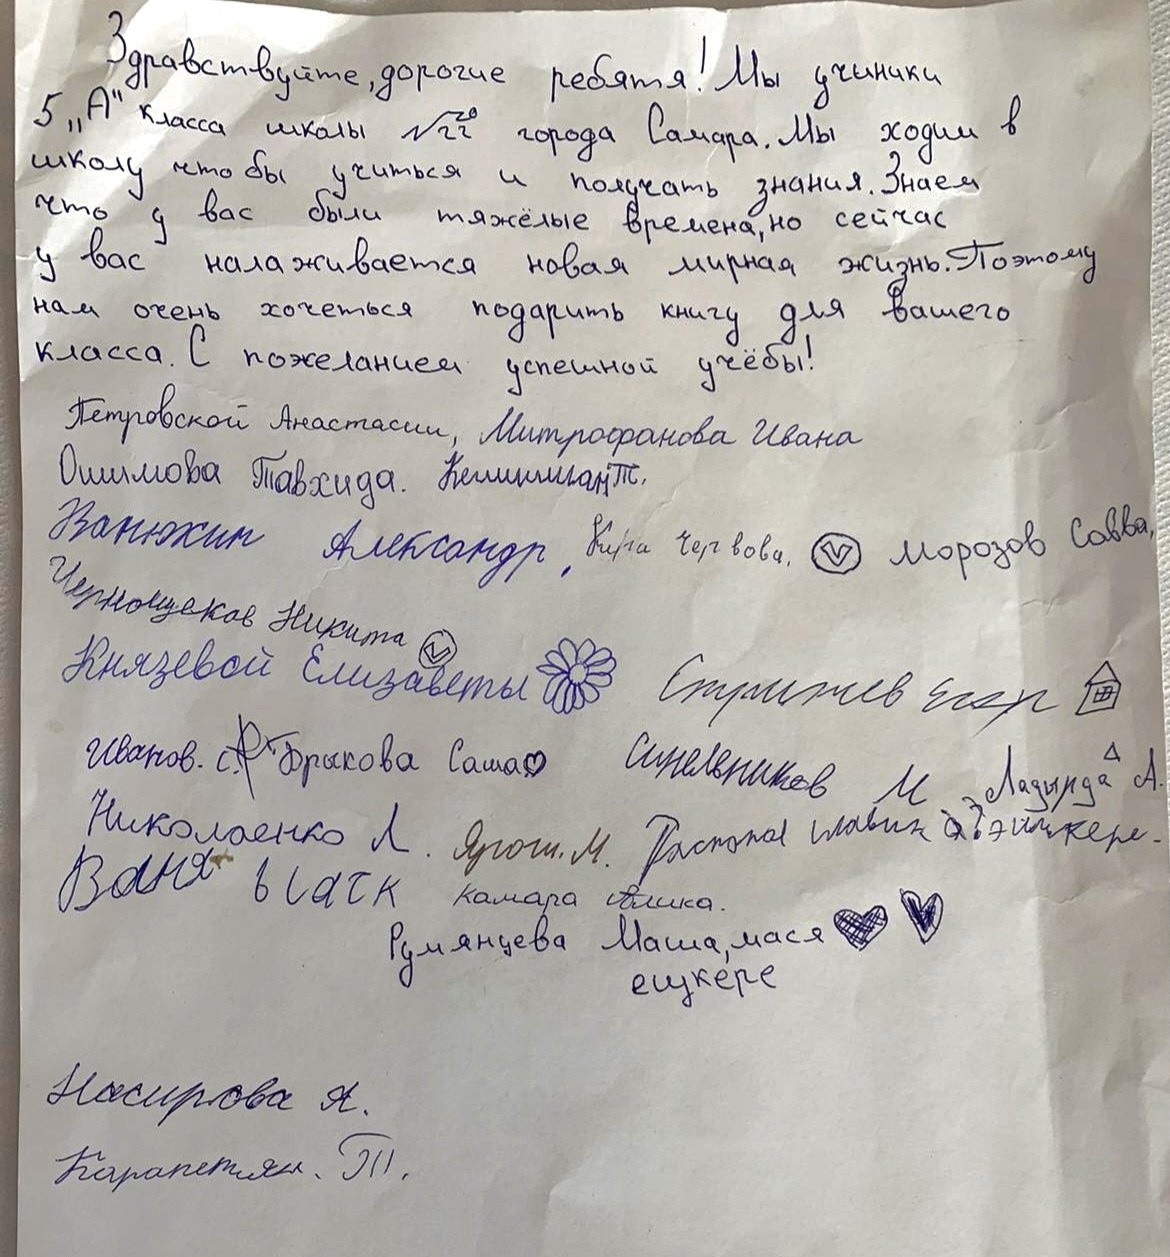 Здравствуйте, дорогие ребята! Мы ученики
5 „А" класса школы №22 города Самара. Мы ходим в
школу что бы учиться и получать знания. Знаем
что у вас были тяжёлые времена, но сейчас
у вас налаживается новая мирная жизнь. Поэтому
нам очень хочеться подарить книгу для вашего
класса. С пожеланием успешной учёбы!
Петровской Анастасии, Митрофанова Ивана
Ошимова Тавхида. Т.
Ванюхин Александр, Кира Червова, Морозов Савва,
Черномщеков Никита
Князевой Елизаветы Стрижев Егор
Иванов. С. Брыкова Саша Синельников М Ладырда А.
Николаенко Л. Ярош. М.
Ваня black Камара Алика.
Румянцева Маша, мася
ещкере
Насирова А.
Карапетян. Т.